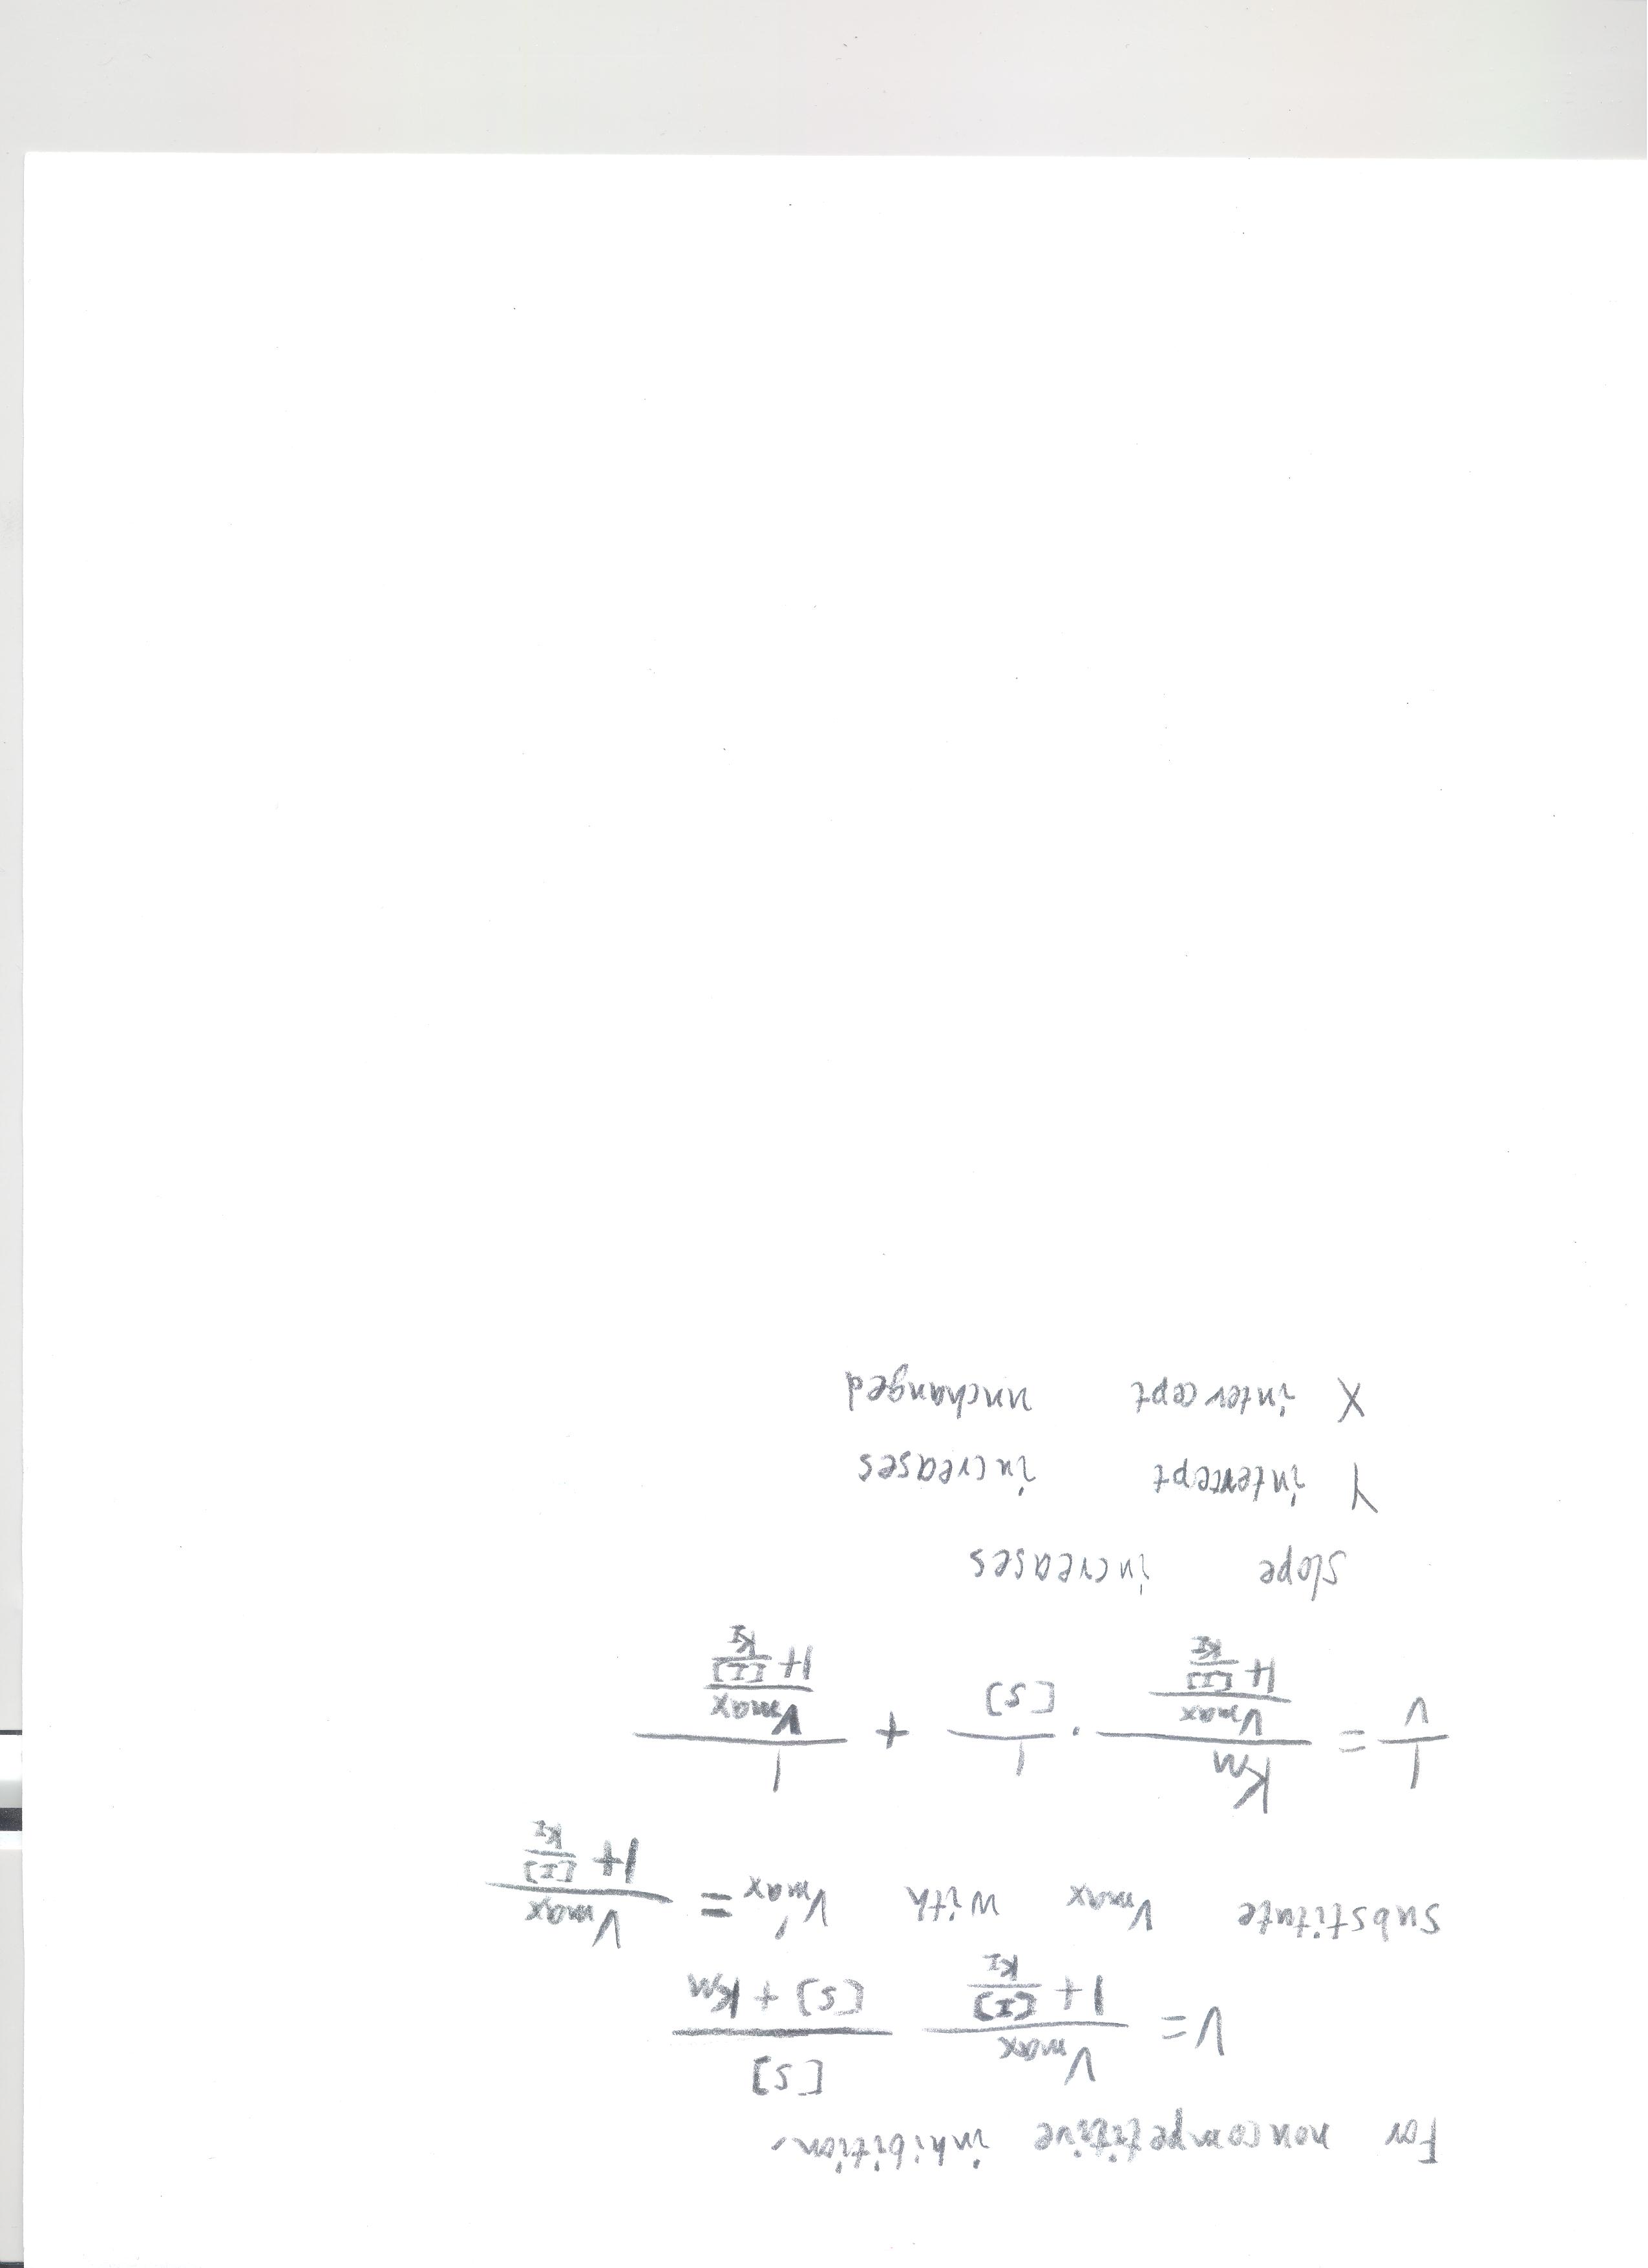 For noncompetitive inhibition,
V = \frac{V_{max}}{1+\frac{[I]}{K_I}} \frac{[S]}{[S]+K_M}
Substitute V_{max} with V'_{max} = \frac{V_{max}}{1+\frac{[I]}{K_I}}
\frac{1}{V} = \frac{K_M}{\frac{V_{max}}{1+\frac{[I]}{K_I}}} \cdot \frac{1}{[S]} + \frac{1}{\frac{V_{max}}{1+\frac{[I]}{K_I}}}
Slope increases
Y intercept increases
X intercept unchanged